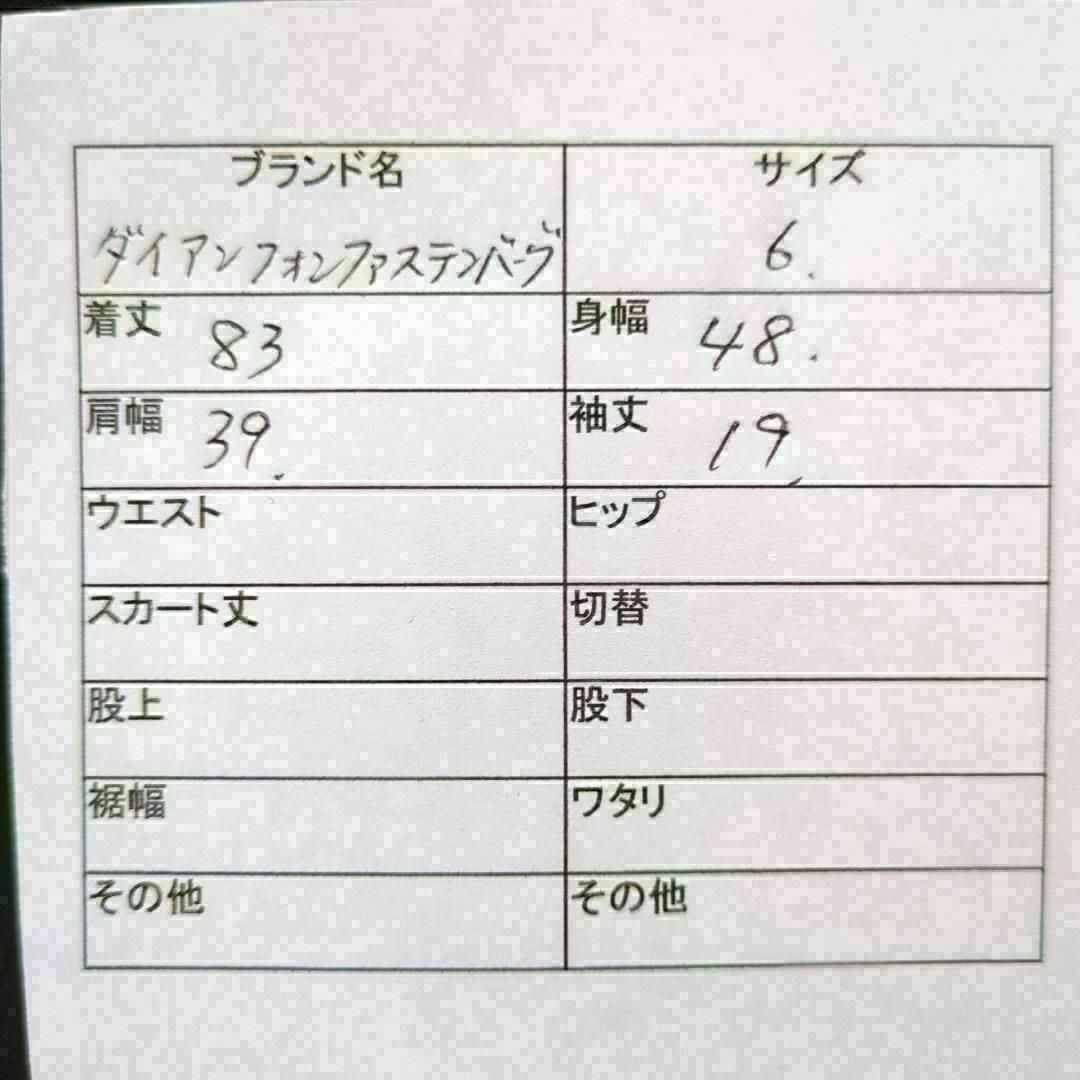 ブランド名 サイズ
ダイアンフォンファステンバーグ 6.
着丈 83 身幅 48.
肩幅 39. 袖丈 19.
ウエスト ヒップ
スカート丈 切替
股上 股下
裾幅 ワタリ
その他 その他